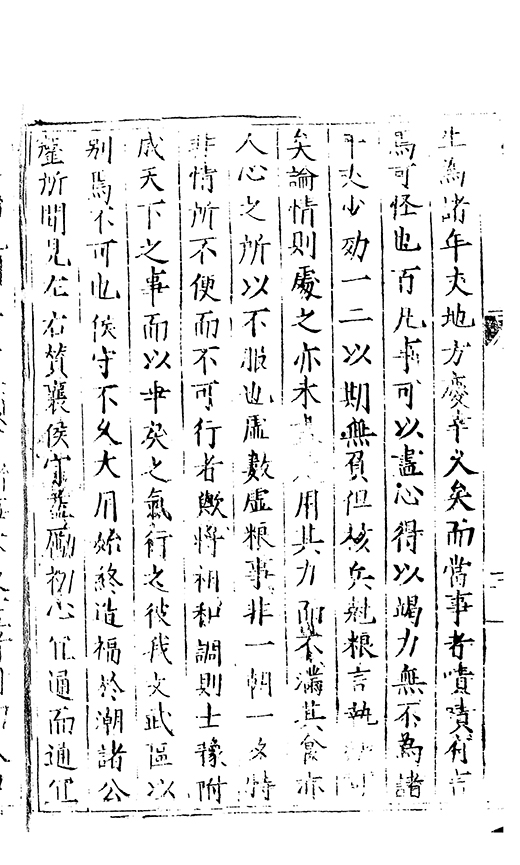 生為諸年夾地方憂辛乂矣而當事者嘖嘖有言
焉可怪也百凡事可以盡心得以竭力無不為諸
年夾少効一二以期無負但核兵尅粮言執
矣論情則處之亦未用其力而不滿其食亦
人心之所以不服也虛數虛粮事非一朝一夕特
非情所不便而不可行者歟將相和調則士豫附
成天下之事而以平矣之氣行之彼我文武區以
別焉不可也侯守不乂大用始終造福於潮諸公
所聞見左右贊襄侯守勵初心宜通而通宜